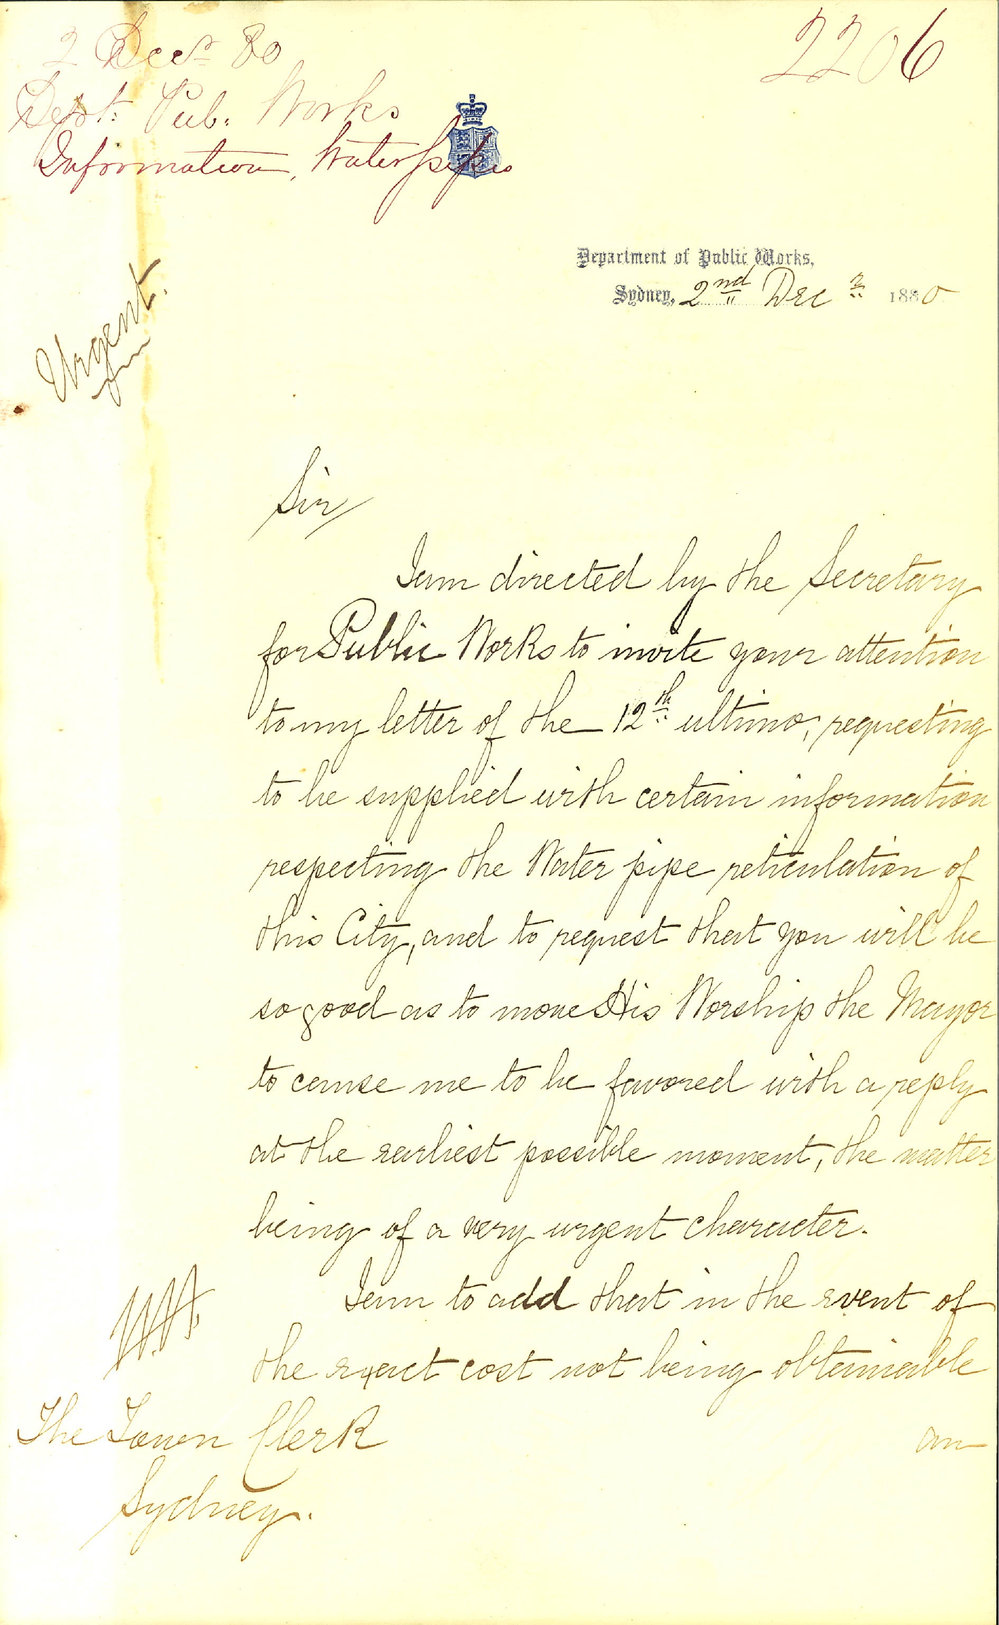 2 Decr 80
2206
Dept. Pub. Works
Information, Water pipes
Department of Public Works,
Sydney, 2nd Decr 1880
Urgent.
Sir/
I am directed by the Secretary
for Public Works to invite your attention
to my letter of the 12th ultimo, requesting
to be supplied with certain information
respecting the Water pipe reticulation of
this City, and to request that you will be
so good as to move His Worship the Mayor
to cause me to be favored with a reply
at the earliest possible moment, the matter
being of a very urgent character.
I am to add that in the event of
the exact cost not being obtainable
an
The Town Clerk
Sydney.